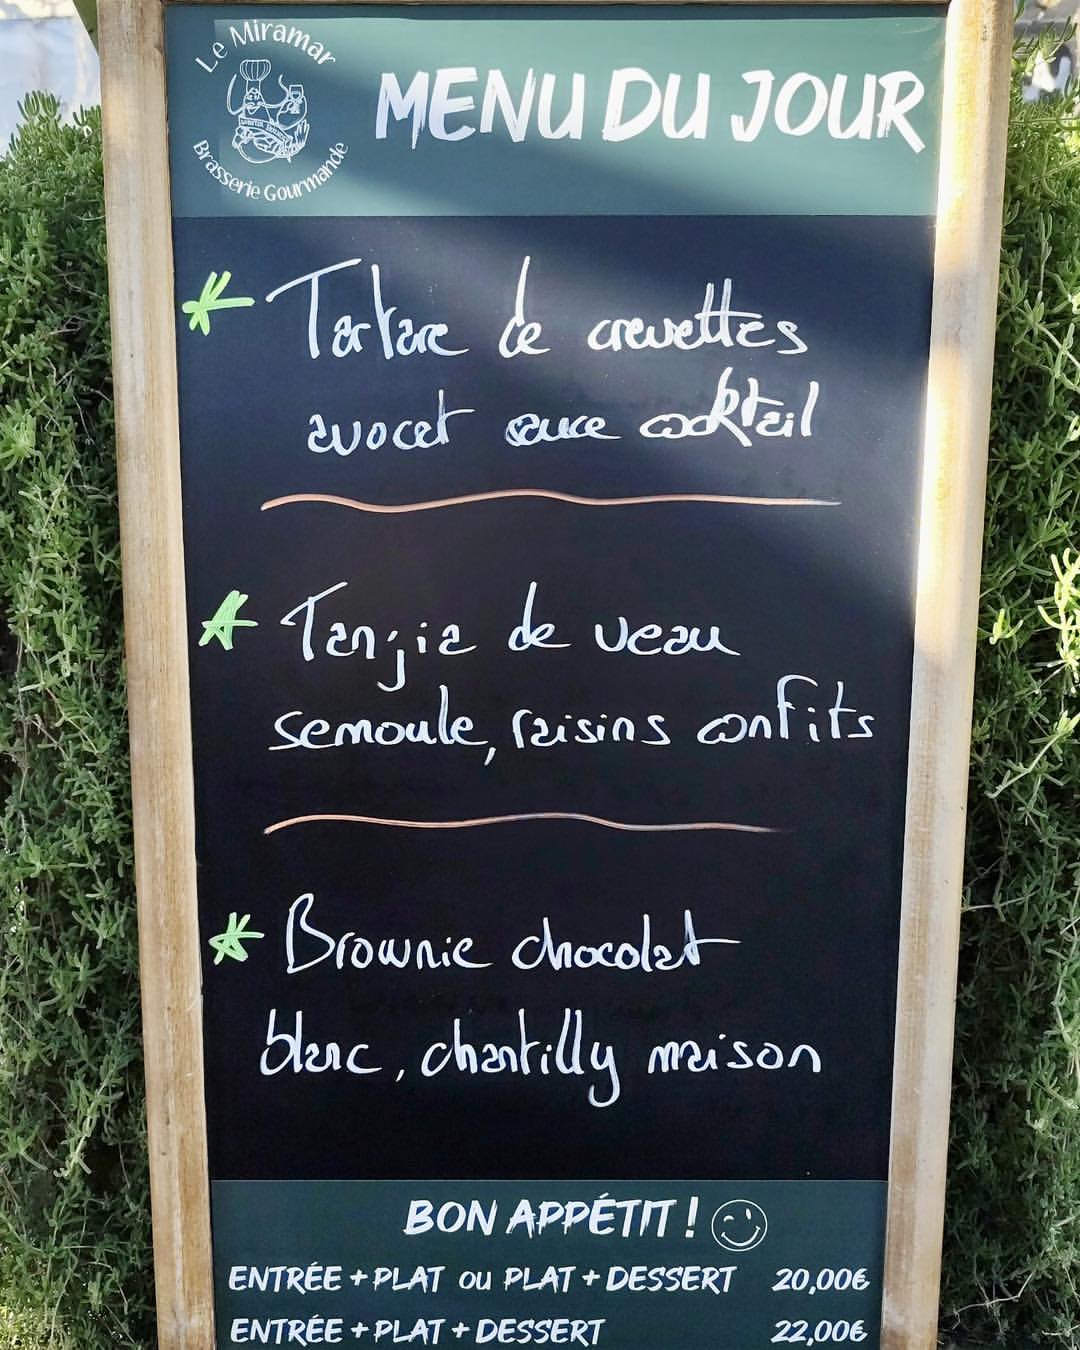 Le Miramar
Brasserie Gourmande
MENU DU JOUR
Tartare de crevettes
avocat sauce cocktail
Tanjia de veau
semoule, raisins confits
Brownie chocolat
blanc, chantilly maison
BON APPÉTIT !
ENTRÉE + PLAT OU PLAT + DESSERT 20,00€
ENTRÉE + PLAT + DESSERT 22,00€